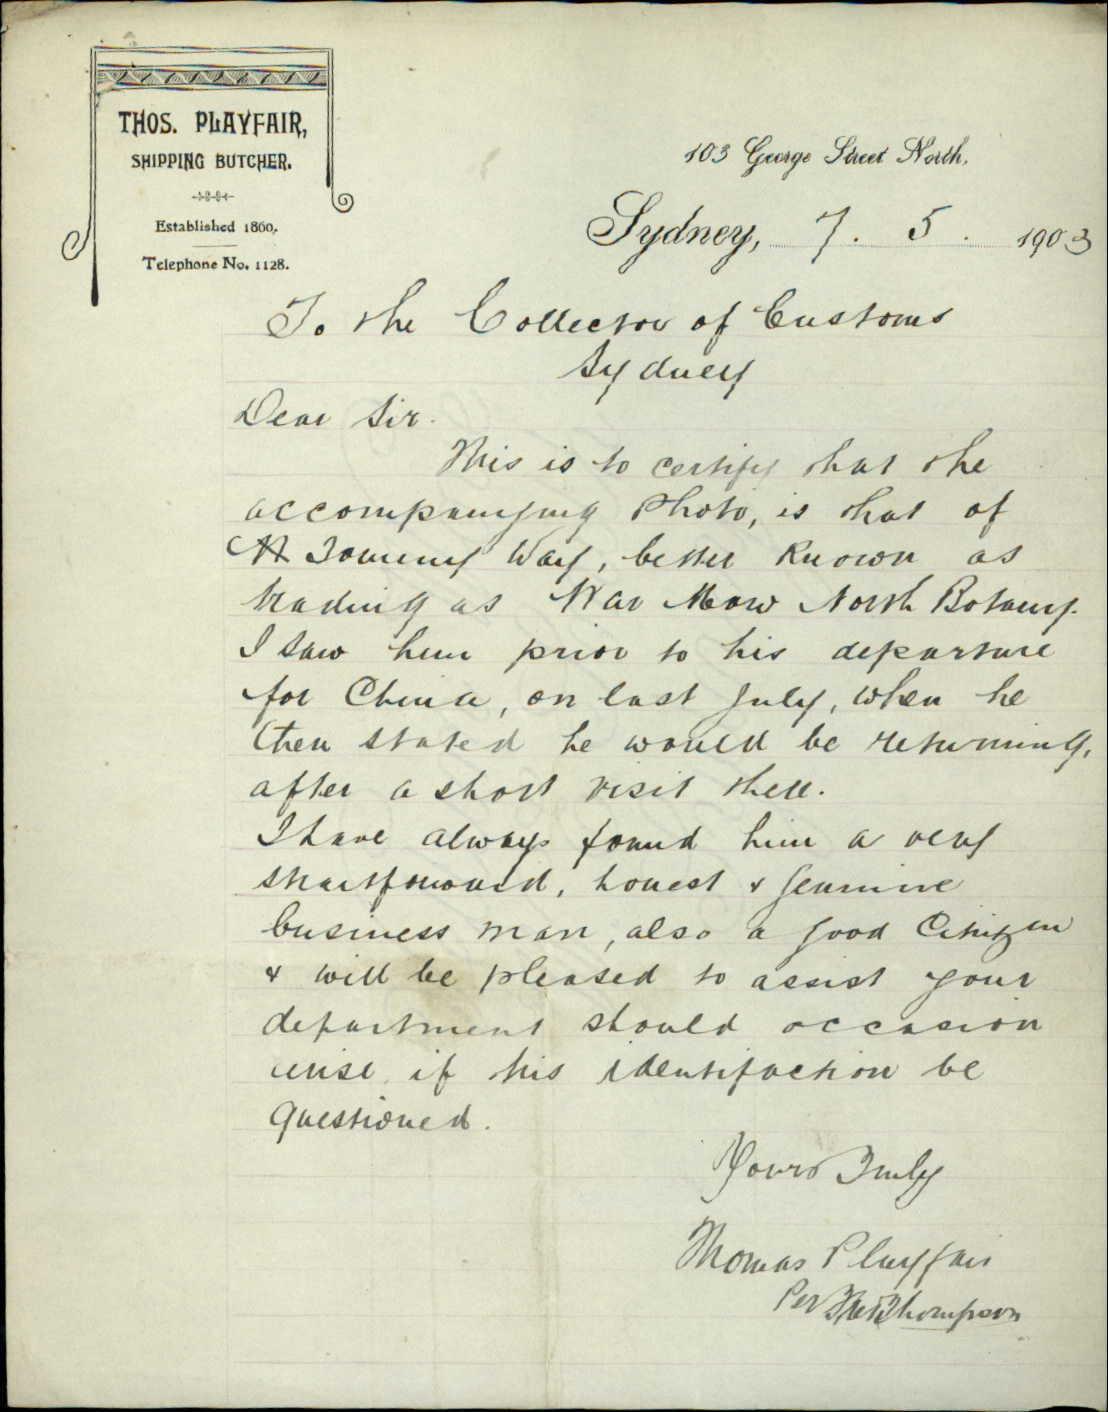 THOS. PLAYFAIR,
SHIPPING BUTCHER.
Established 1860.
Telephone No. 1128.
103 George Street North,
Sydney, 7. 5. 1903
To the Collector of Customs
Sydney
Dear Sir.
This is to certify that the
accompanying Photo, is that of
Tommy Way, better known as
trading as War Mow North Botany.
I saw him prior to his departure
for China, on last July, when he
then stated he would be returning,
after a short visit there.
I have always found him a very
straitforward, honest & genuine
business man, also a good Citizen
& will be pleased to assist your
department should occasion
arise if his identifaction be
questioned.
Yours Truly
Thomas Playfair
Per Thompson